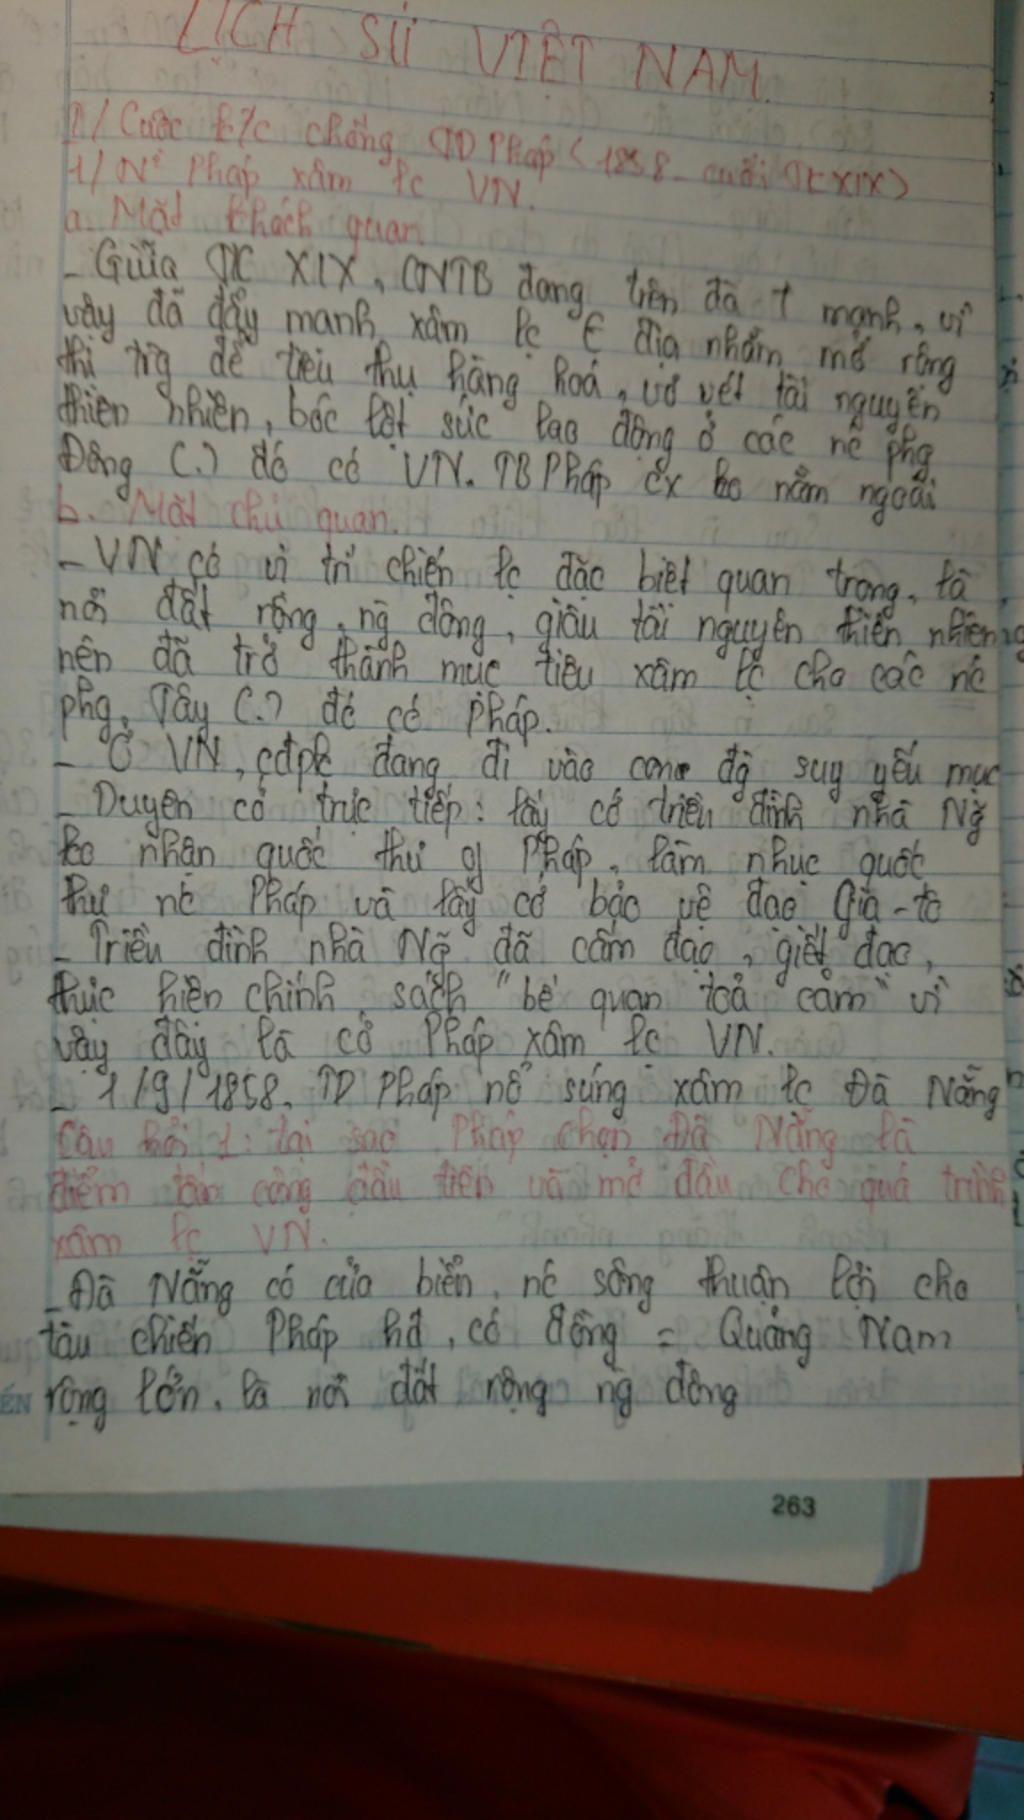 LỊCH SỬ VIỆT NAM.
1/ Cuộc k/c chống TD Pháp (1858 - cuối TK XIX)
1/ N² Pháp xâm lc VN.
a. Mặt khách quan
- Giữa TK XIX, CNTB đang trên đà ↑ mạnh, vì
vậy đã đẩy mạnh xâm lc € địa nhằm mở rộng
thị trg để tiêu thụ hàng hoá, vơ vét tài nguyên
thiên nhiên, bóc lột sức lao động ở các nc phg
Đông (.) đó có VN. TB Pháp cx ko nằm ngoài
b. Mặt chủ quan.
- VN có vị trí chiến lc đặc biệt quan trọng, là
nơi đất rộng, ng đông, giàu tài nguyên thiên nhiên
nên đã trở thành mục tiêu xâm lc cho các nc
phg. Tây (.) đó có Pháp.
- Ở VN, cđpk đang đi vào con đg suy yếu mục
- Duyên cớ trực tiếp: lấy cớ triều đình nhà Ng~
ko nhận quốc thư of Pháp, làm nhục quốc
thư nc Pháp và lấy cớ bảo vệ đạo Gia-tô
- Triều đình nhà Ng~ đã cấm đạo, giết đạo,
thực hiện chính sách "bế quan toả cảm" vì
vậy đây là cớ Pháp xâm lc VN.
- 1/9/1858, TD Pháp nổ súng xâm lc Đà Nẵng
Câu hỏi 1: tại sao Pháp chọn Đà Nẵng là
điểm tấn công đầu tiên và mở đầu cho quá trình
xâm lc VN.
- Đà Nẵng có cửa biển, nc sông thuận lợi cho
tàu chiến Pháp hđ, có đồng = Quảng Nam
rộng lớn, là nơi đất rộng ng đông
263